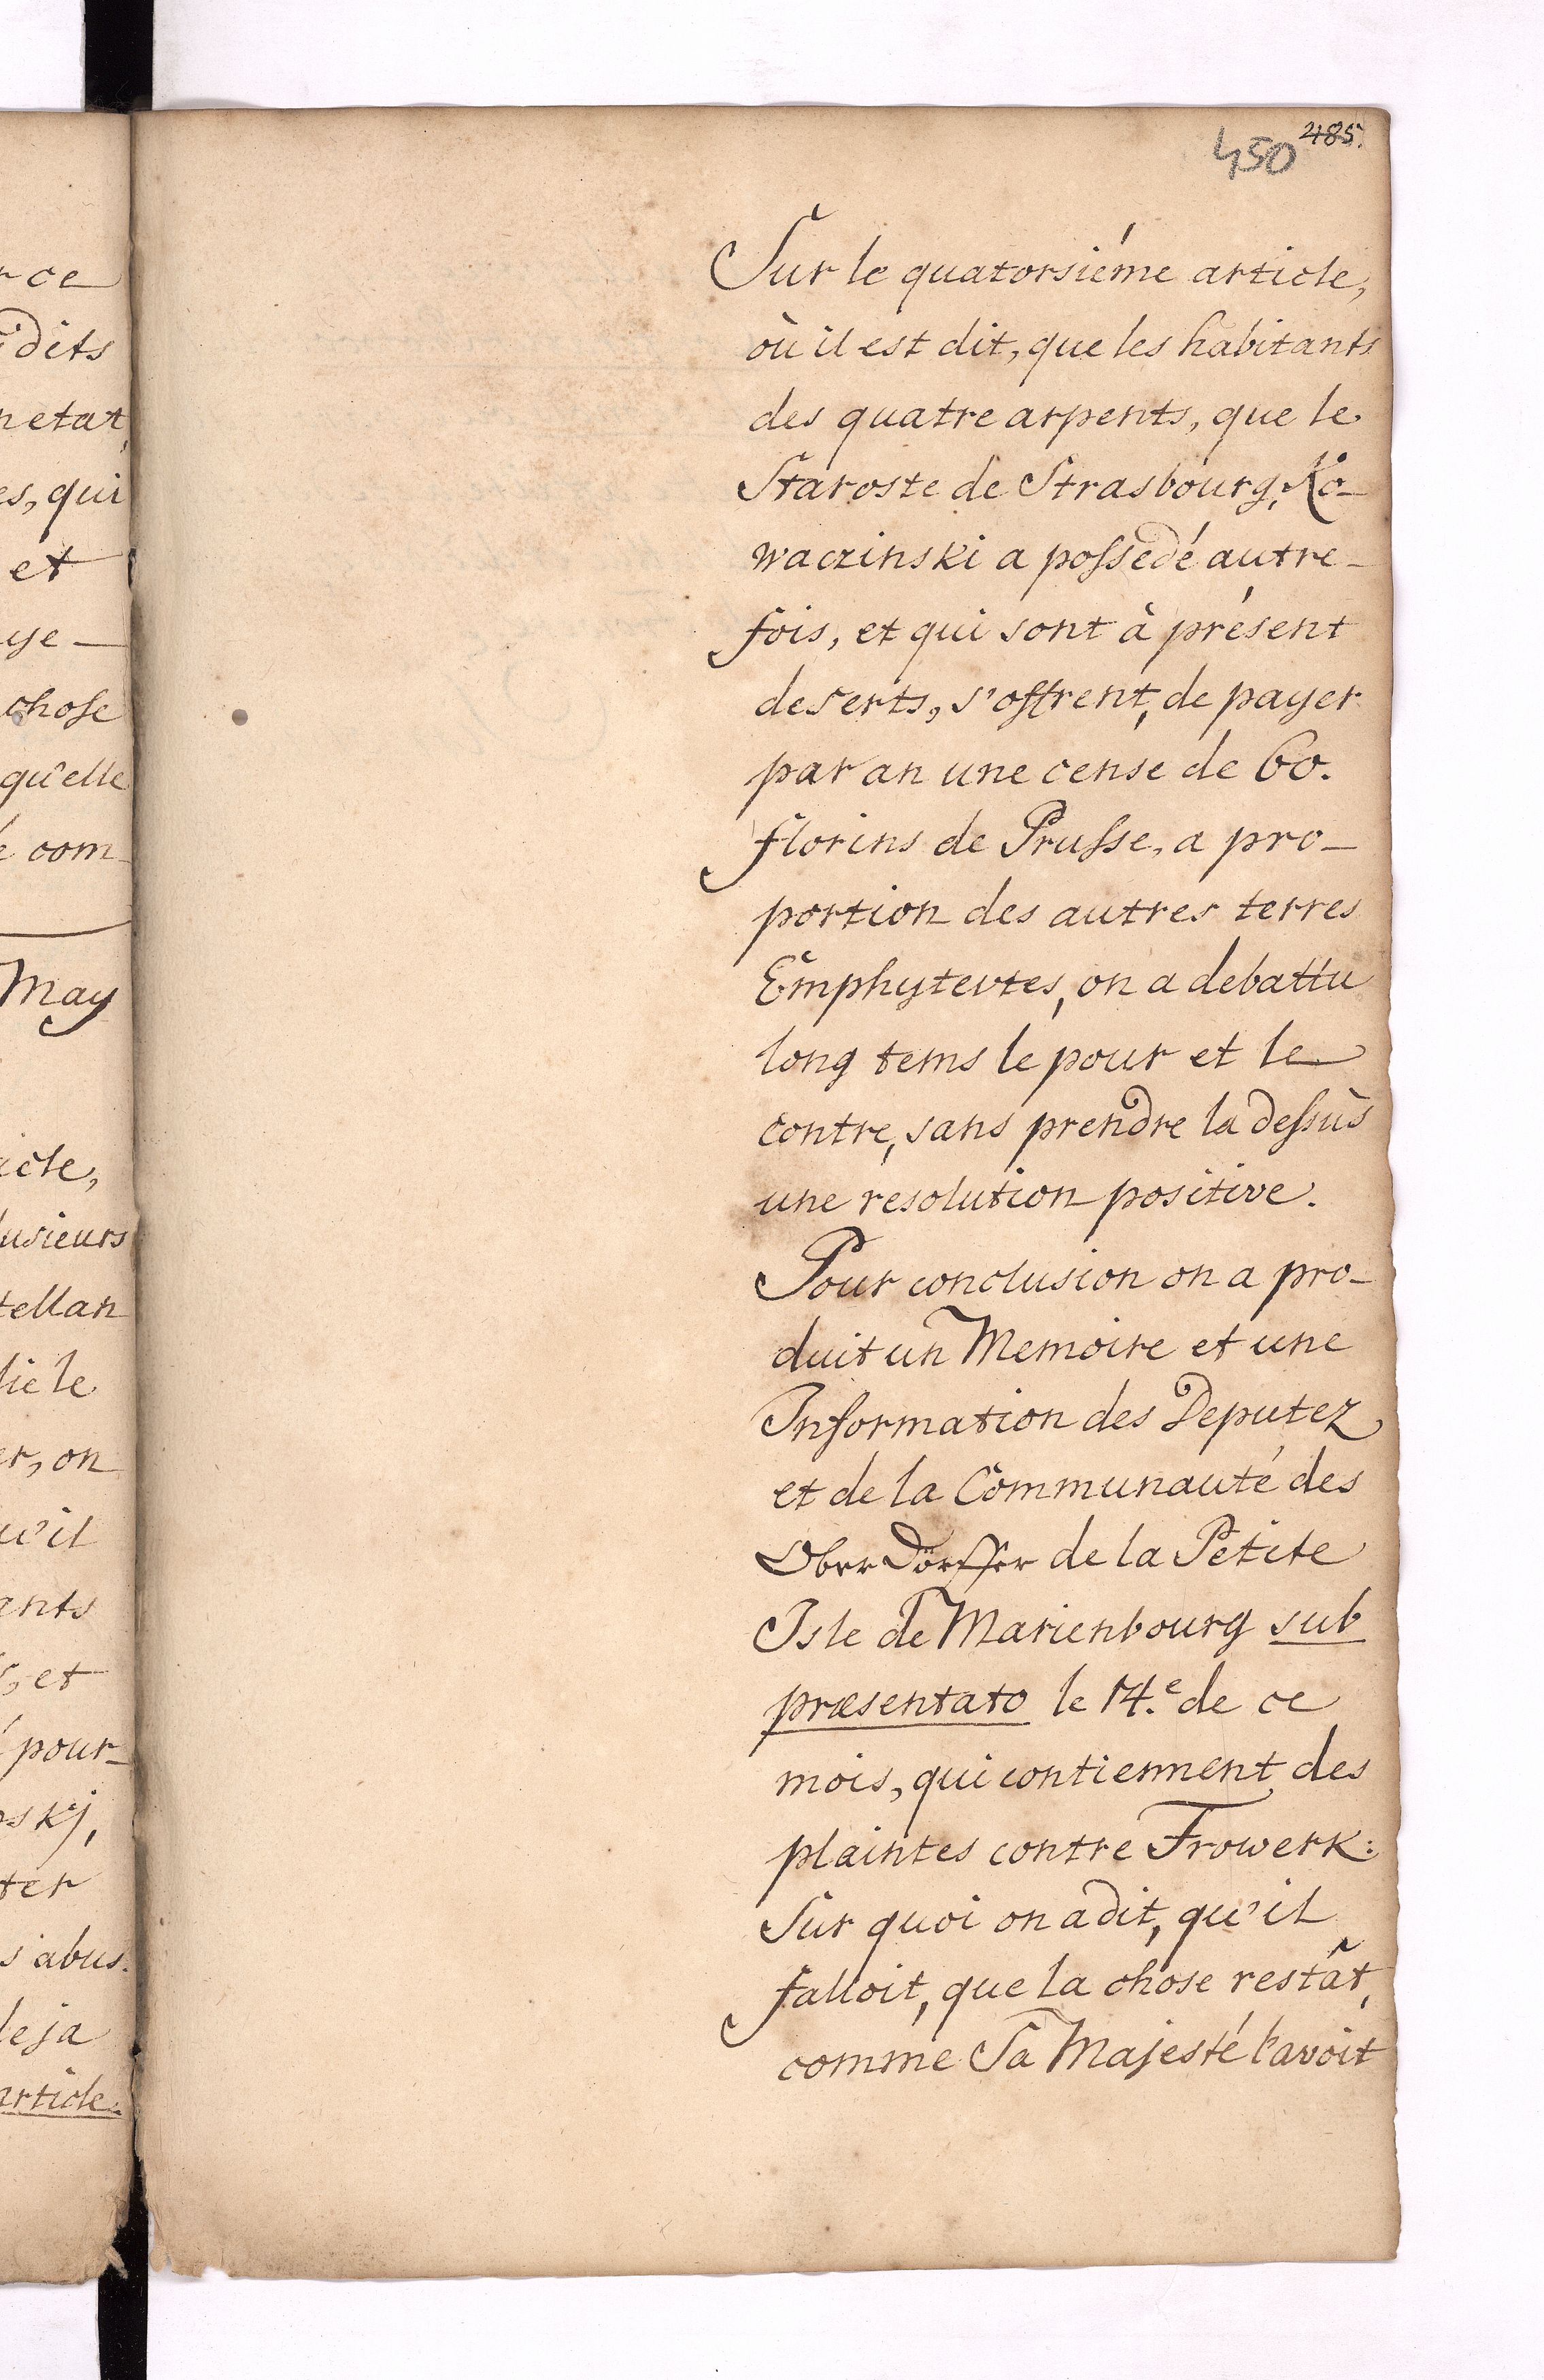 485.
450
Sur le quatorsiéme article,
où il est dit, que les habitants
des quatre arpents, que le
Staroste de Strasbourg, Ko-
waczinski a possedé autre-
fois, et qui sont à présent
deserts, s'offrent, de payer
par an une cense de 60.
florins de Prusse, a pro-
portion des autres terres
Emphytevtes, on a debattu
long tems le pour et le
contre, sans prendre la dessùs
une résolution positive.
Pour conclusion on a pro-
duit un Memoire et une
Information des Deputez
et de la Communauté des
Ober Dörffer de la Petite
Isle de Marienbourg sub
præsentato le 14.e de ce
mois, qui contiennent des
plaintes contre Frowerk:
Sur quoi on a dit, qu'il
falloit, que la chose restât,
comme Sa Majesté l'avoit
r ce
dits
n etat,
es, qui
et
ye
chose
qu'elle
é com-
May
icle,
lusieurs
tellan
lie le
er, on
u'il
ants
s, et
pour-
oskj,
ter
s abus.
deja
article.